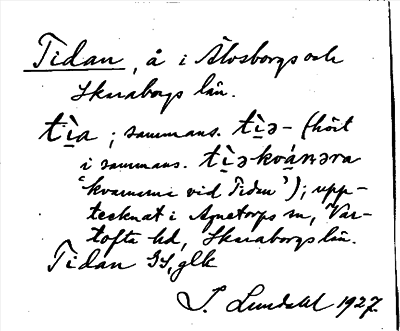 Tidan, å i Älvsborgs och
Skaraborgs län.
tìa; sammans. tìə- (hört
i sammans. tìəkvánəra
'kvarnarna vid Tidan'); upp-
tecknat i Agnetorps sn, Var-
tofta hd, Skaraborgs län.
Tidan GS, glk
S. Lundahl 1927.